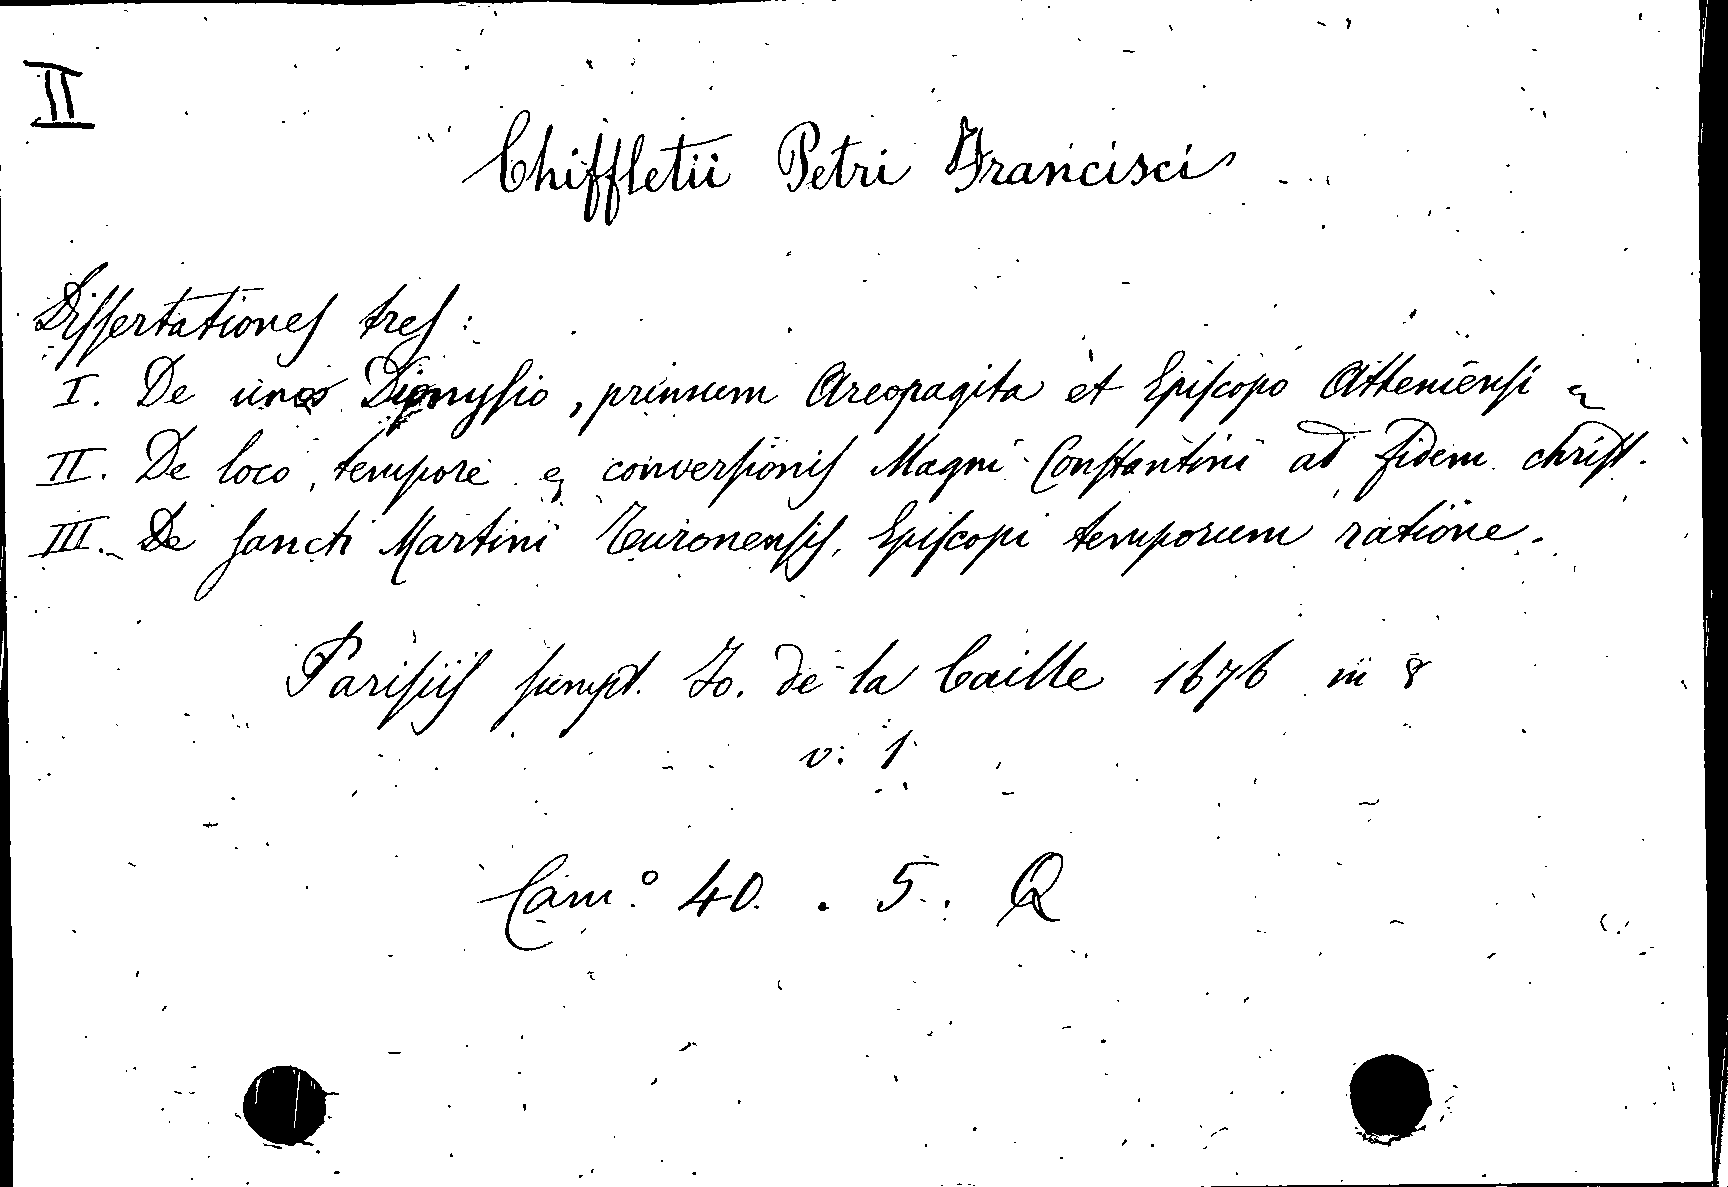 II
Chiffletii Petri Francisci
Dissertationes tres:
I. De uno Dionysio, primum Areopagita et Episcopo Atheniensi &
II. De loco, tempore & conversionis Magni Constantini ad fidem christ.
III. De sancti Martini Turonensis, Episcopi temporum ratione.
Parisiis sumpt. Jo. de la Caille 1676 in 8
v. 1
Cam.º 40. . 5. Q